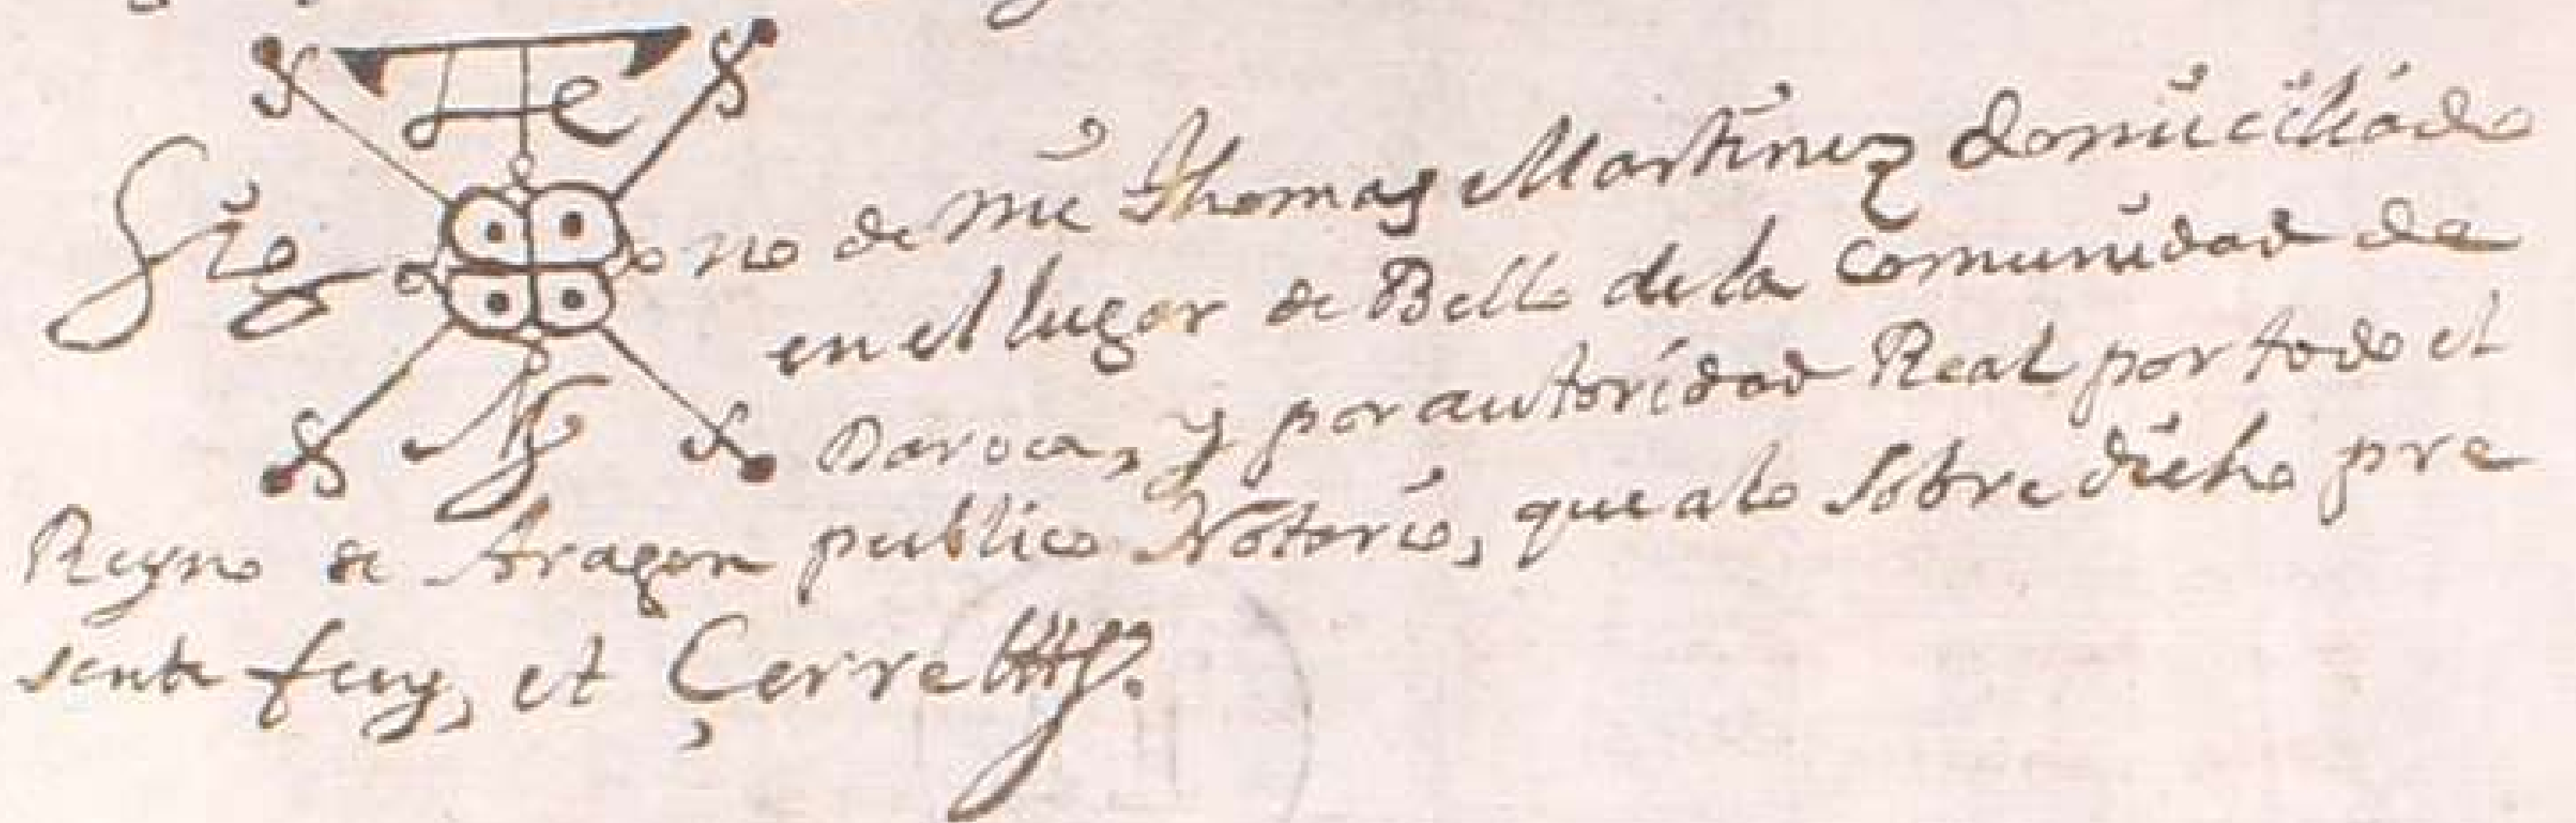 Sig no de mi Thomas Martinez domiciliado
en el lugar de Bello de la Comunidad de
Daroca, y por autoridad Real por todo el
Reyno de Aragon publico Notario, que a lo sobre dicho pre
sente fuy, et Çerre